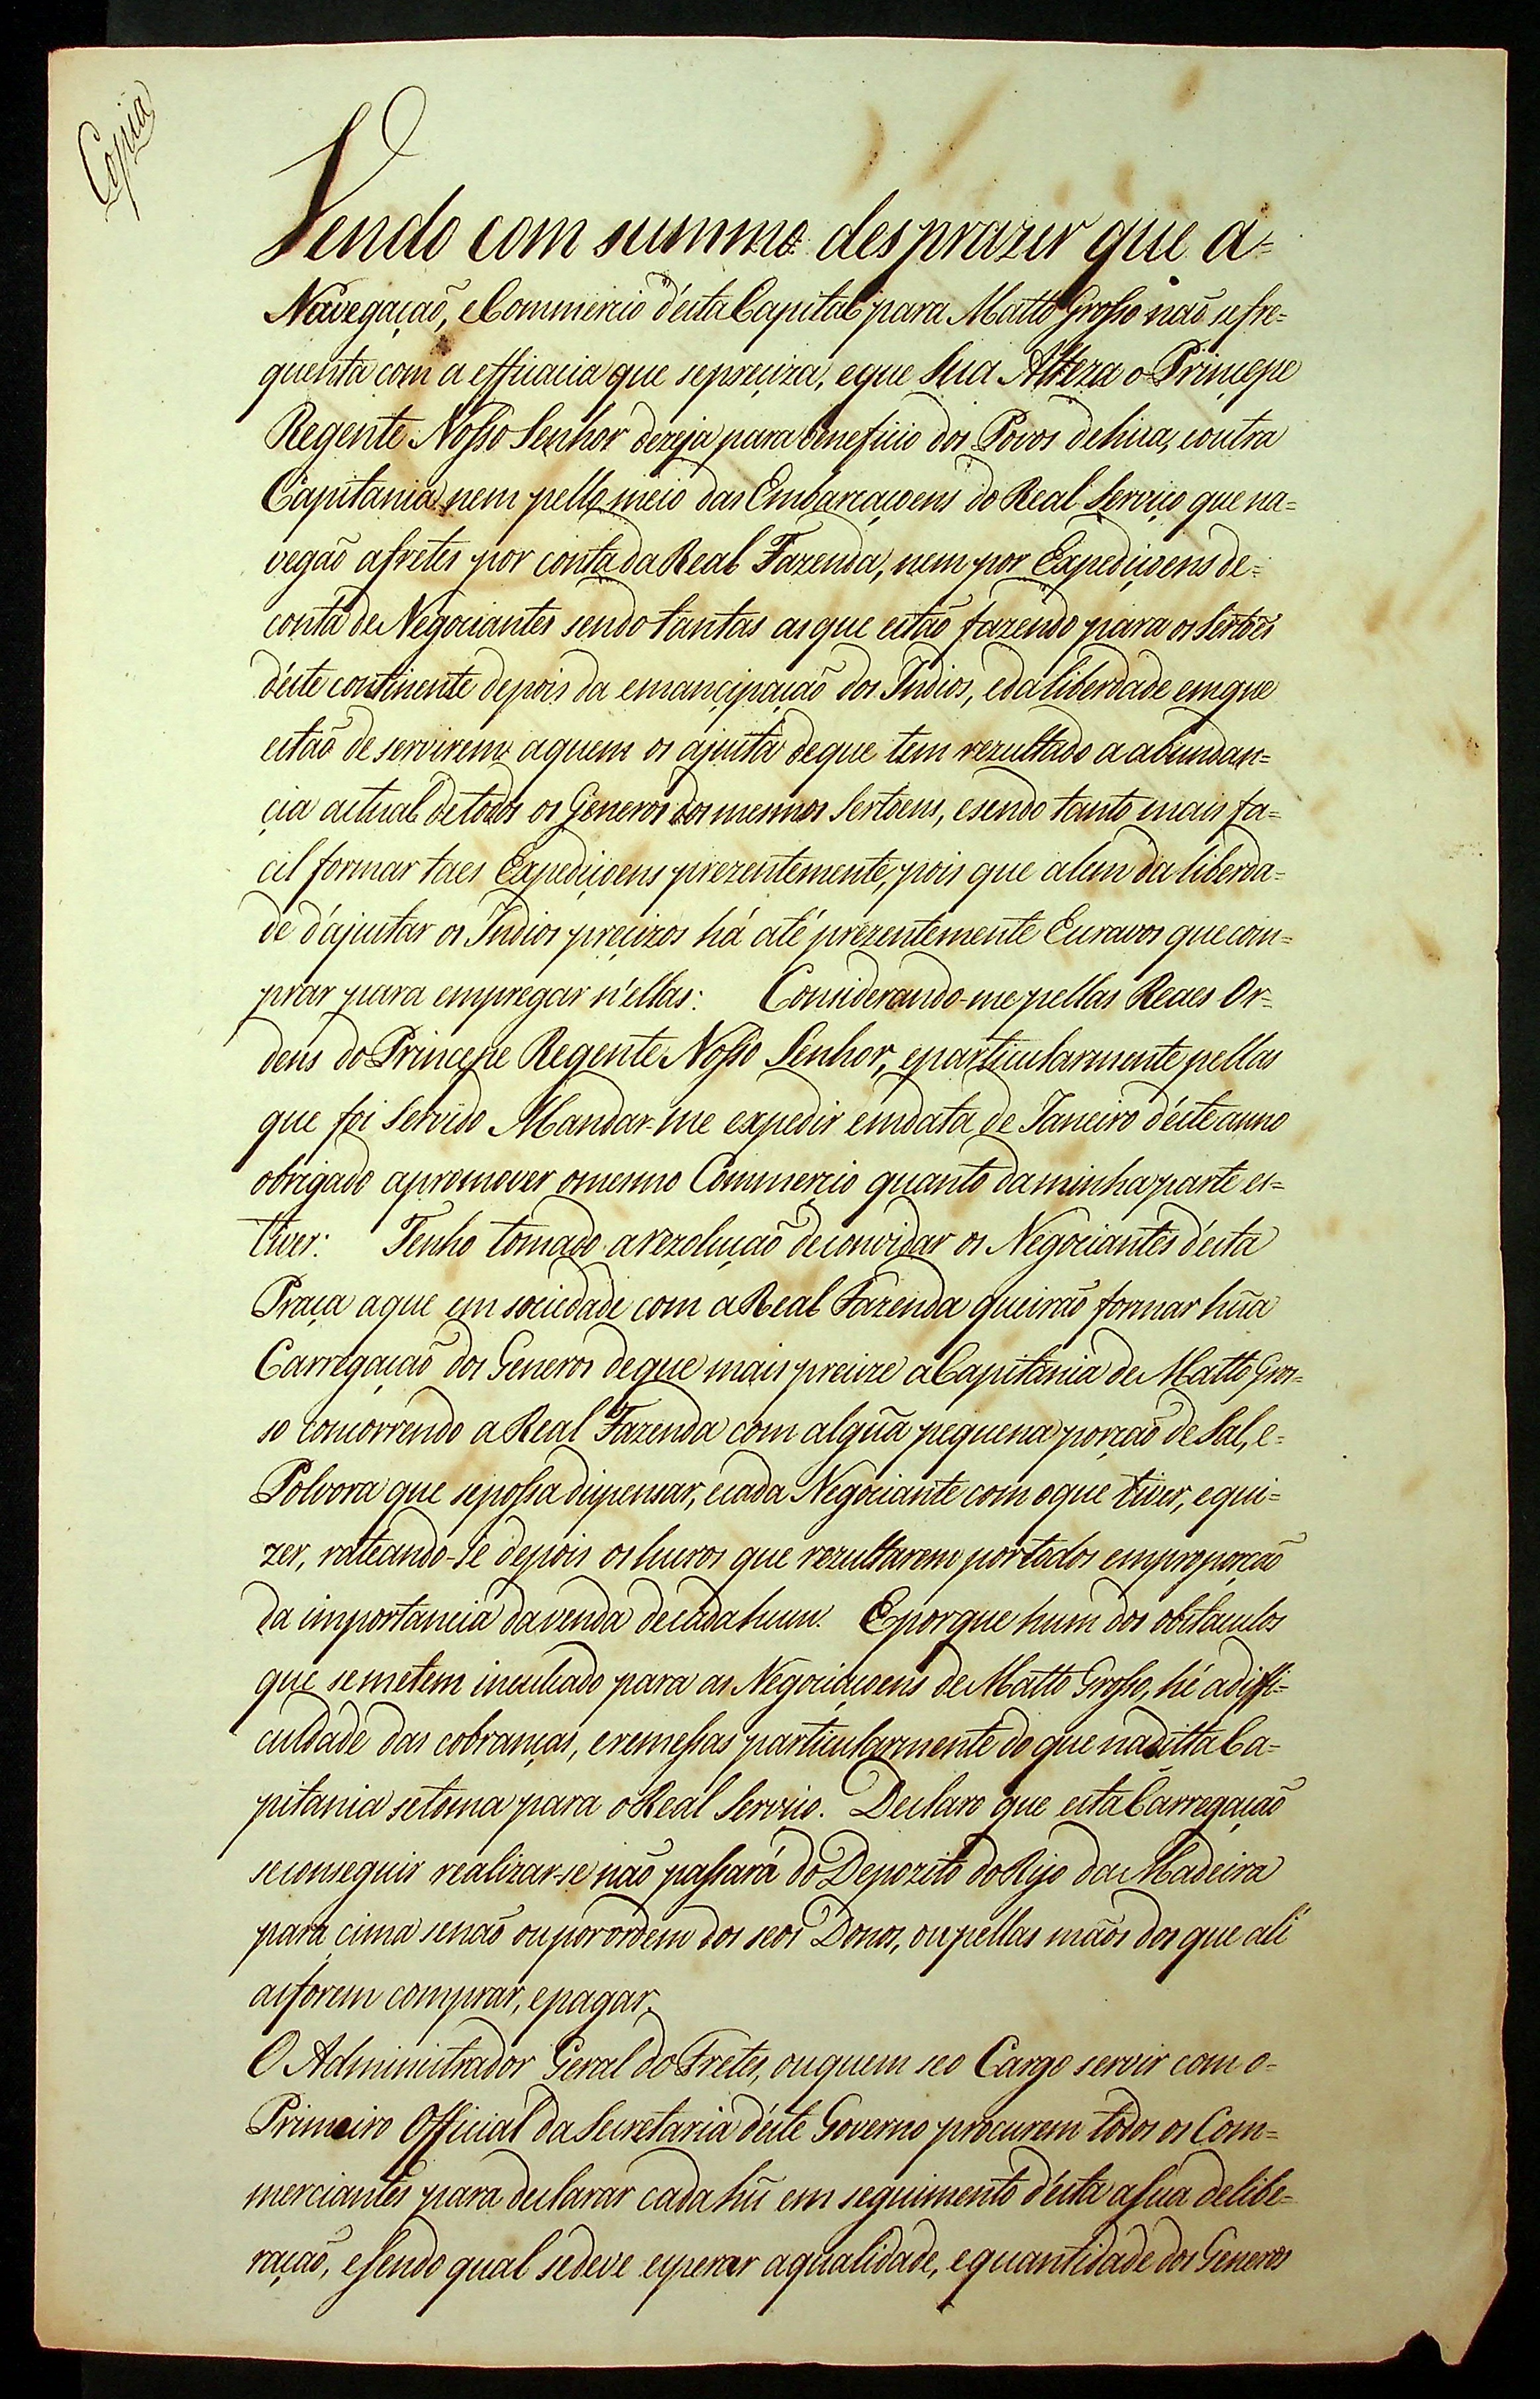 Copia
Vendo com summo desprazer que a=
Navegação, e Commercio d'ésta Capital para Matto Grosso não se fre=
quenta com a efficacia que se preciza, e que Sua Alteza o Principe
Regente Nosso Senhor dezeja para beneficio dos Povos de hua, e outra
Capitania, nem pello meio das Embarcaçoens do Real Serviço que na=
vegão a fretes por conta da Real Fazenda, nem por Expediçoens de=
conta de Negociantes sendo tantas as que estão fazendo para os Sertoés
d'éste continente depois da emancipação dos Indios, e da liberdade em que
estão de servirem a quem os ajusta de que tem rezultado a abundan=
cia actual de todos os Generos dos mesmos Sertoens, e sendo tanto mais fa=
cil formar taes Expediçoens prezentemente, pois que alem da liberda=
de d'ajustar os Indios precizos há até prezentemente Escravos que com=
prar para empregar n'ellas: Considerando-me pellas Reaes Or=
dens do Principe Regente Nosso Senhor, e particularmente pellas
que foi Servido Mandar-me expedir em data de Janeiro d'éste anno
obrigado a promover o mesmo Commercio quanto da minha parte es=
tiver: Tenho tomado a rezolução de convidar os Negociantes d'ésta
Praça a que em sociedade com a Real Fazenda queirão formar hũa
Carregação dos Generos de que mais precize a Capitania de Matto Gros=
so concorrendo a Real Fazenda com algũa pequena porção de Sal, e=
Polvora que se possa dispensar, e cada Negociante com o que tiver, e qui=
zer, rateando-se depois os lucros que rezultarem por todos em proporção
da importancia da venda de cada hum. E porque hum dos obstaculos
que se me tem inculcado para as Negociaçoens de Matto Grosso, hé a diffi=
culdade das cobranças, e remessas particularmente do que na ditta Ca=
pitania se toma para o Real Serviço. Declaro que esta Carregação
se conseguir realizar-se não passará do Depozito do Rijo da Madeira
para cima senão ou por ordem dos seos Donos, ou pellas mãos dos que ali
as forem comprar, e pagar.
O Administrador Geral do Fretes, ou quem seo Cargo servir com o=
Primeiro Official da Secretaria d'éste Governo procurem todos os Com=
merciantes para declarar cada hũ em seguimento d'ésta a sua delibe=
ração, e sendo qual se deve esperar a qualidade, e quantidade dos Generos